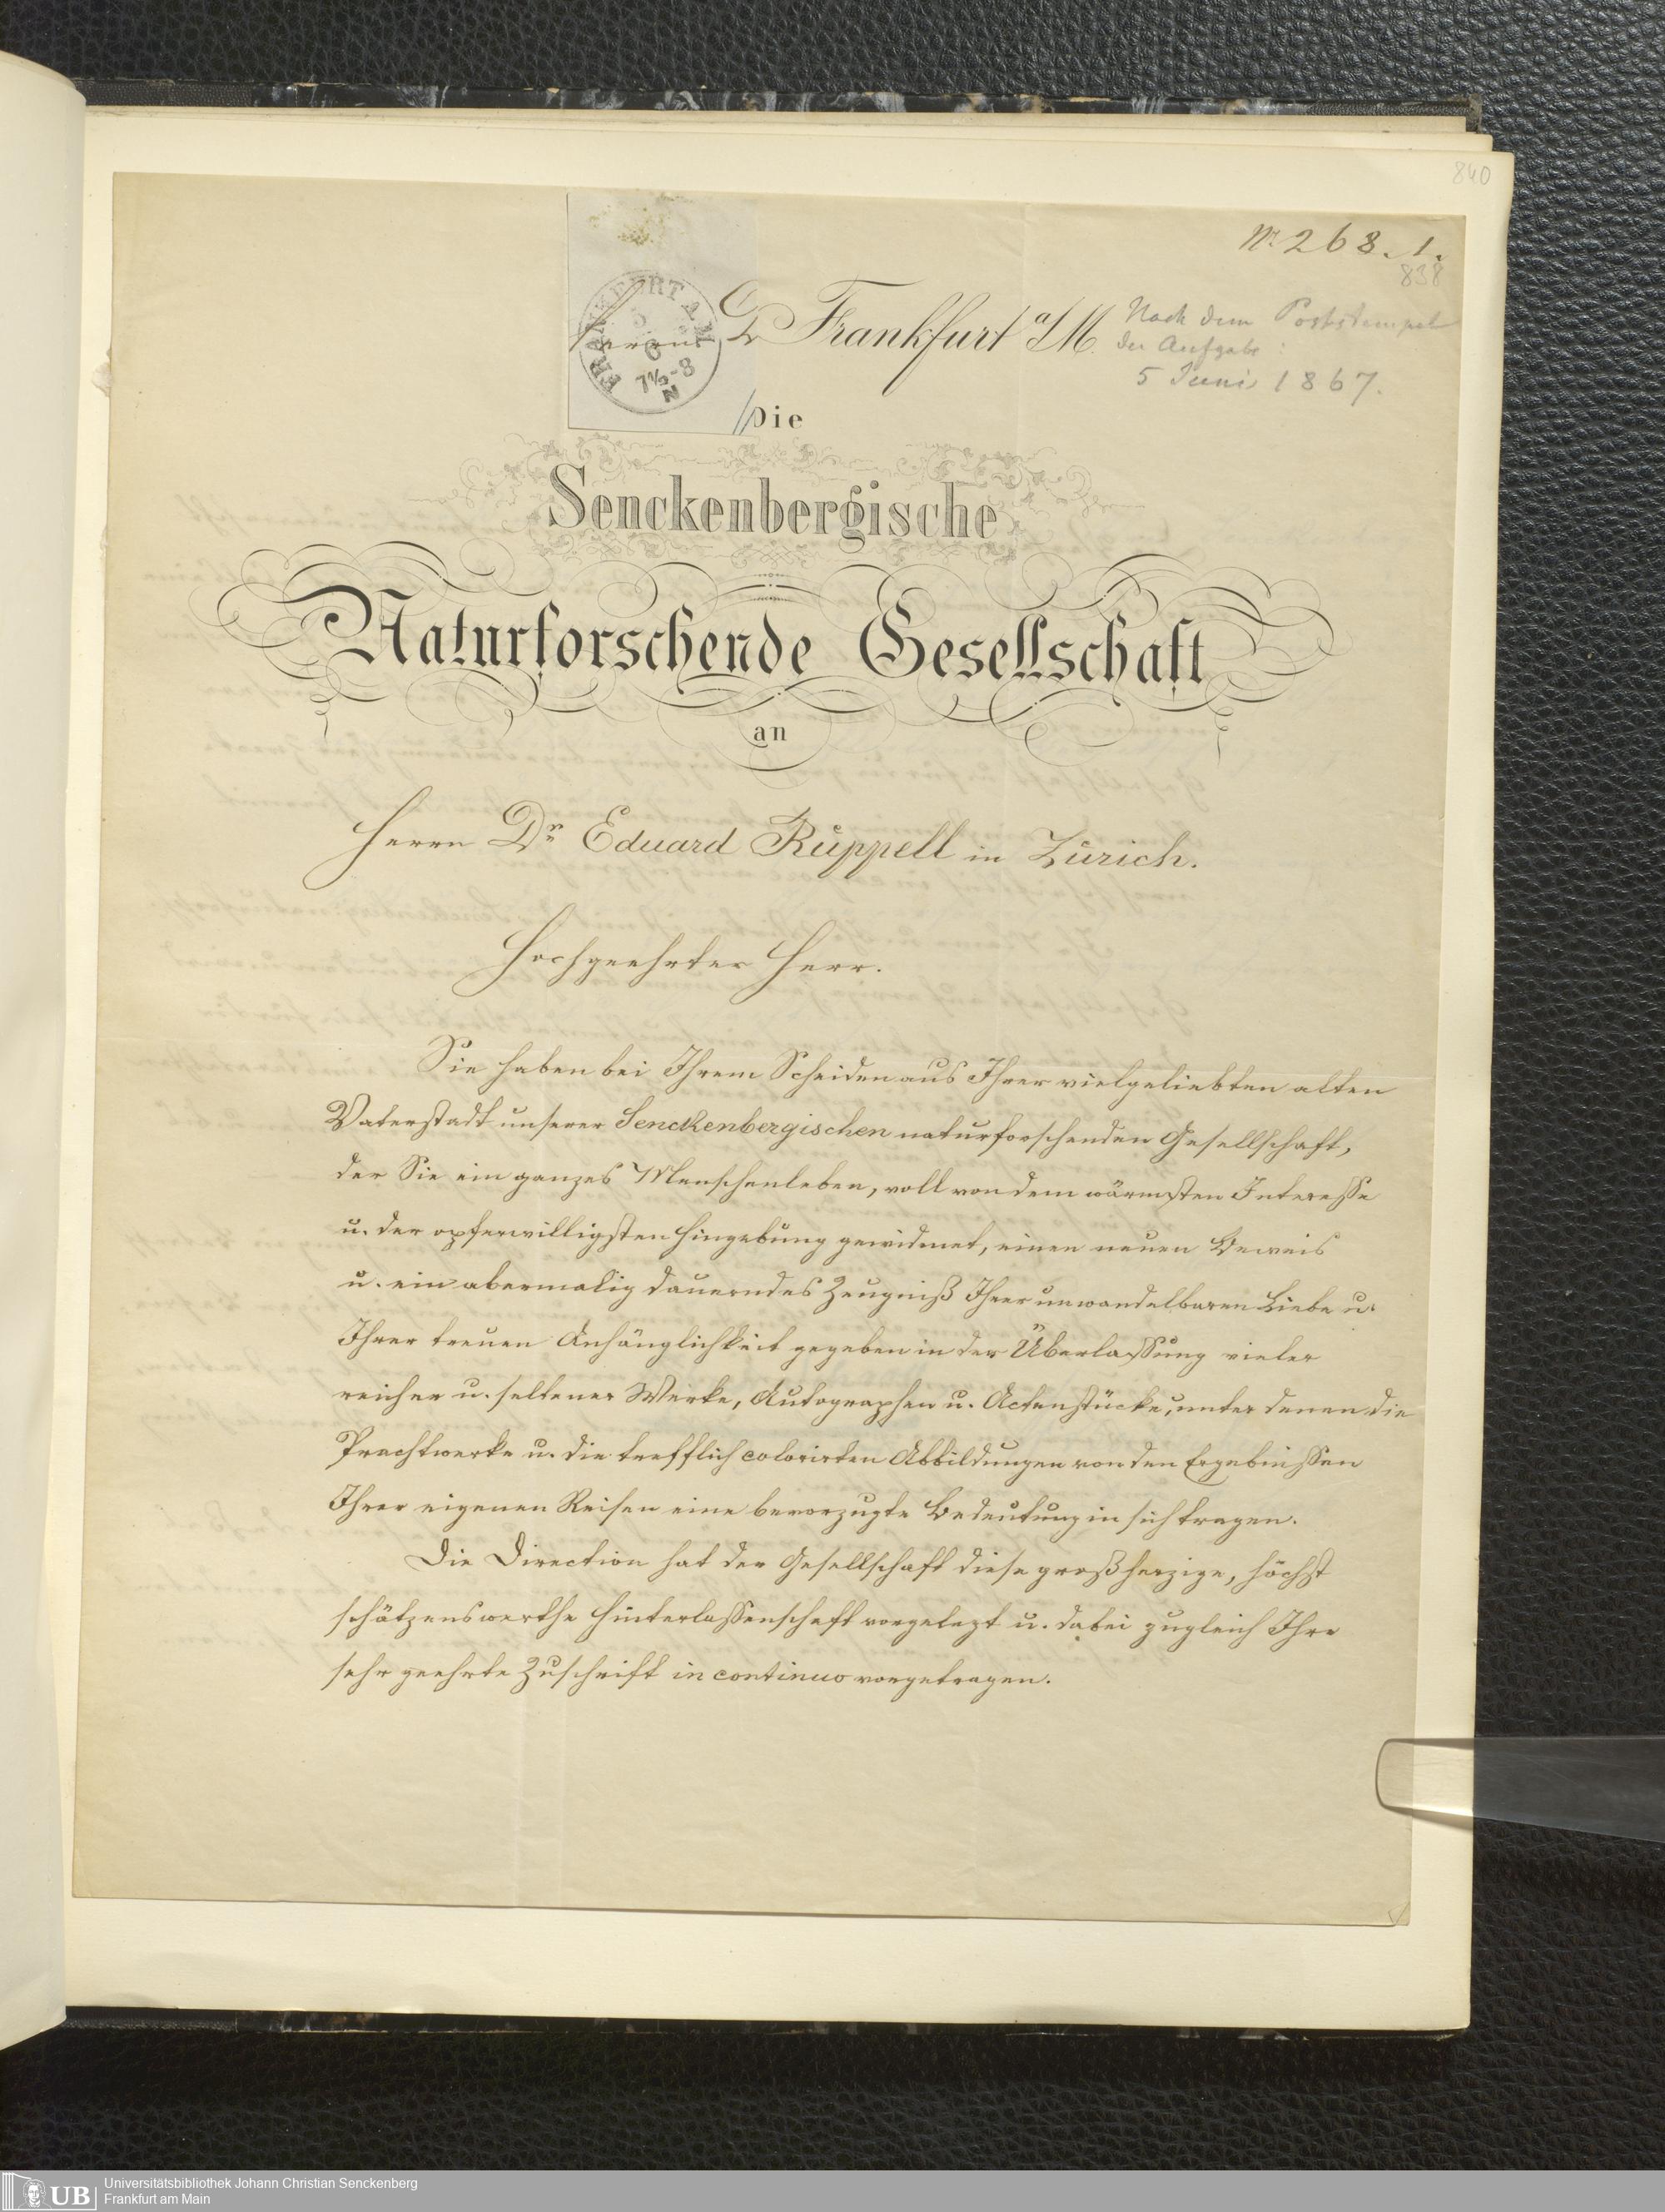 840
Nr. 268. 1.
838
FRANKFURT A. M.
5
6
7½-8
N
Herrn Dr
Frankfurt a/M.
Nach dem Poststempel
der Aufgabe:
5 Juni 1867.
Die
Senckenbergische
Naturforschende Gesellschaft
an
Herrn Dr. Eduard Rüppell in Zürich.
Hochgeehrter Herr.
Sie haben bei Ihrem Scheiden aus Ihrer vielgeliebten alten
Vaterstadt unserer Senckenbergischen naturforschenden Gesellschaft,
der Sie ein ganzes Menschenleben, voll von dem wärmsten Interesse
u. der opferwilligsten Hingebung gewidmet, einen neuen Beweis
u. ein abermalig dauerndes Zeugniß Ihrer unwandelbaren Liebe u.
Ihrer treuen Anhänglichkeit gegeben in der Überlassung vieler
reicher u. seltener Werke, Autographen u. Actenstücke, unter denen die
Prachtwerke u. die trefflich colorirten Abbildungen von den Ergebnissen
Ihrer eigenen Reisen eine bevorzugte Bedeutung in sich tragen.
Die Direction hat der Gesellschaft diese großherzige, höchst
schätzenswerthe Hinterlassenschaft vorgelegt u. dabei zugleich Ihre
sehr geehrte Zuschrift in continuo vorgetragen.
UB
Universitätsbibliothek Johann Christian Senckenberg
Frankfurt am Main